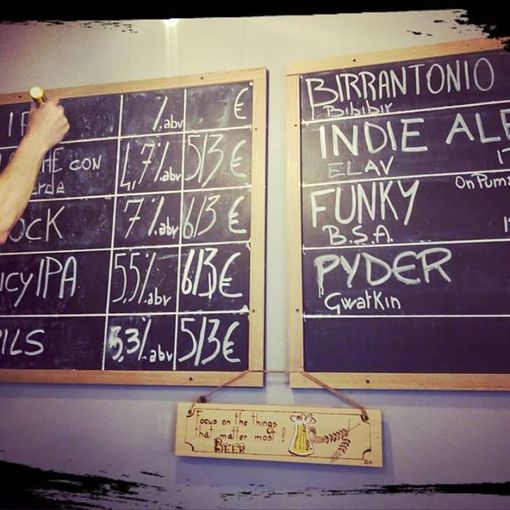 %abv €
CON 4,7% abv 5/3 €
OCK 7% abv 6/3 €
ICY IPA 5.5% abv 6/3 €
ILS 5,3% abv 5/3 €
BIRRANTONIO
Bibibir
INDIE ALE
ELAV
FUNKY On Pum
B.S.A.
PYDER
Gwatkin
Focus on the things
that matter most!
BEER